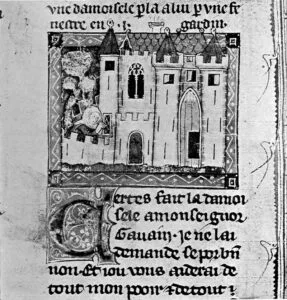 vne damoisele pla a lui p vne fe
nestre en .i. gardin.
Certes fait la damoi
sele a monseignor
Gauain. je ne lai
demande se por bñ
non. Et iou vous aiderai de
tout mon pooir & de tout